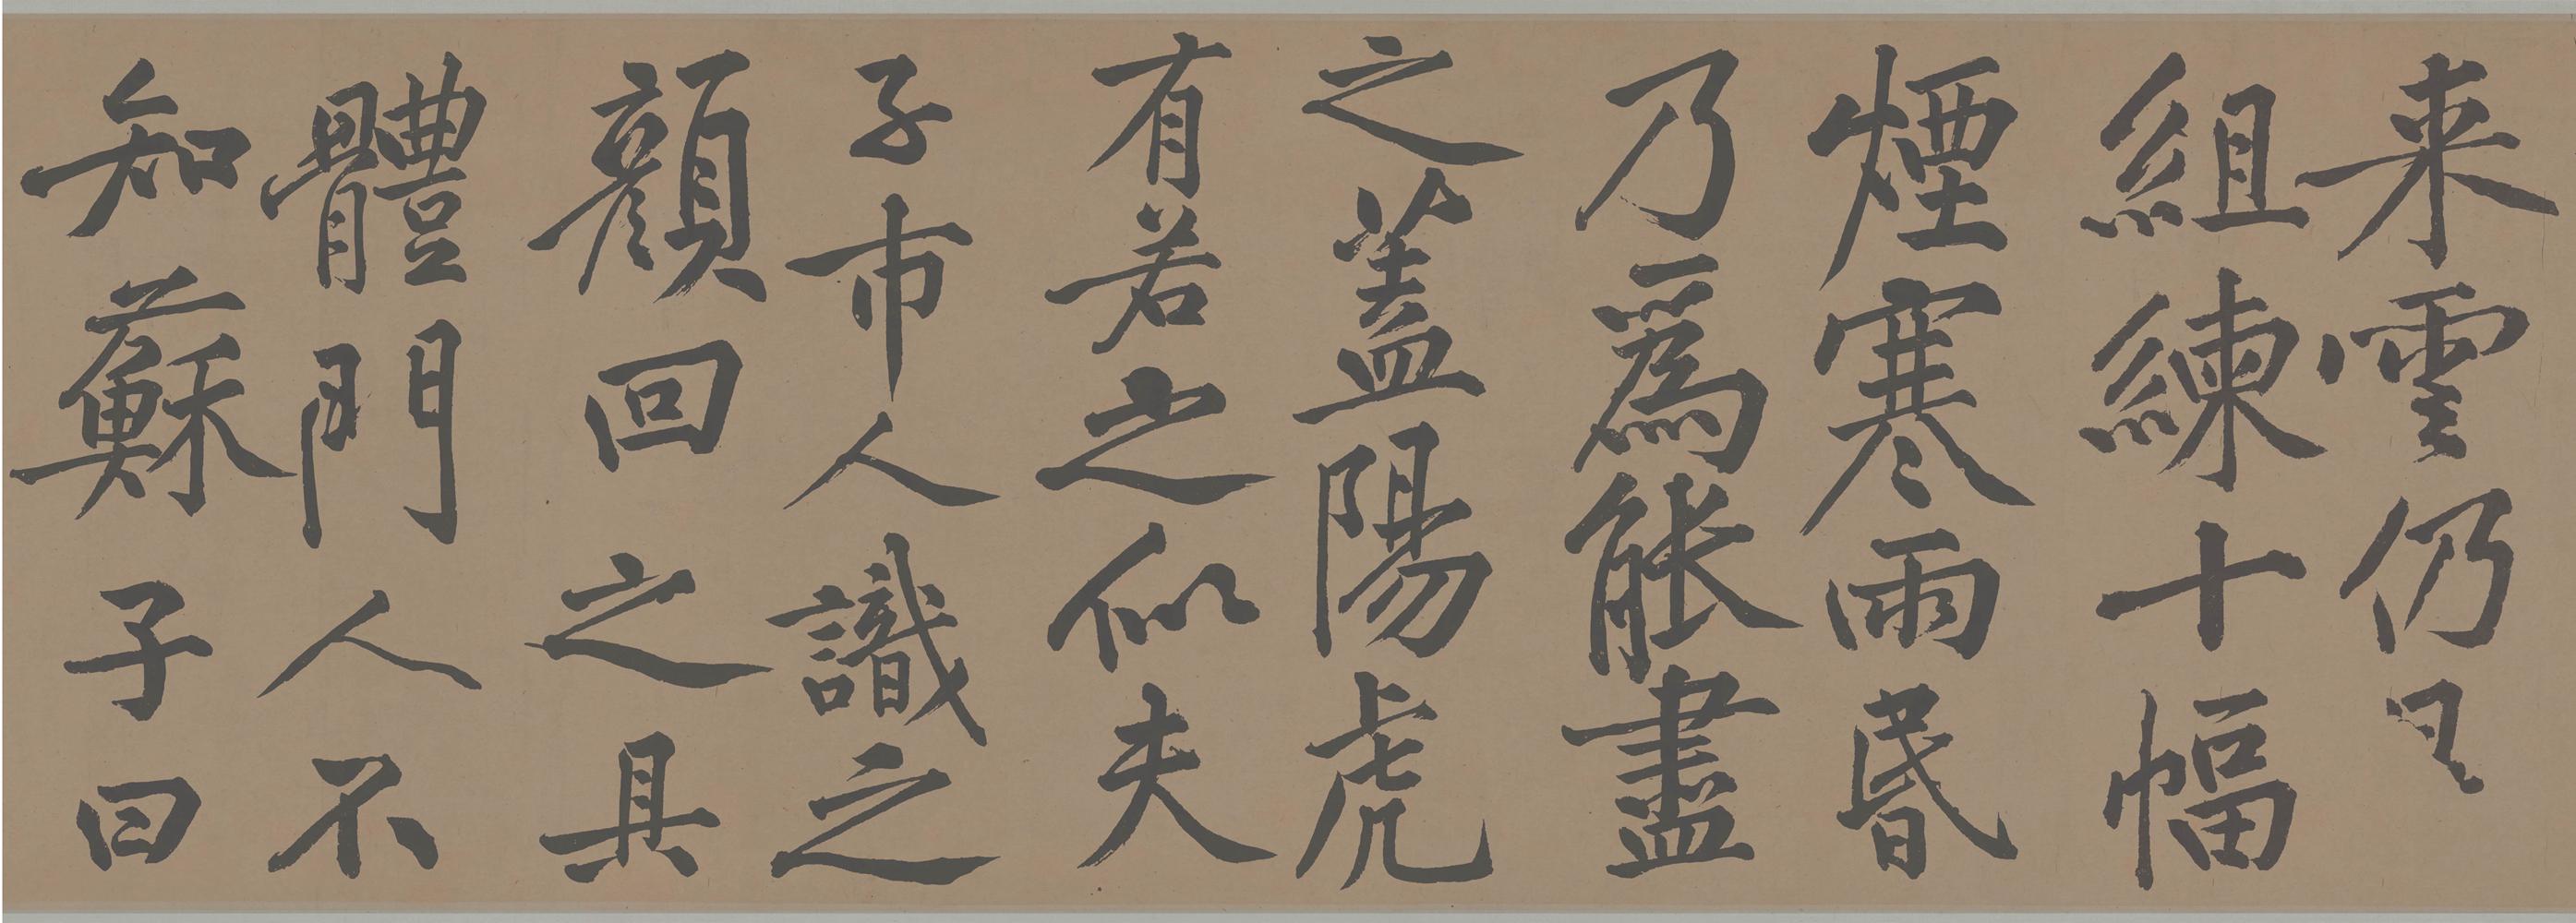 来雲仍
組練十幅
煙寒雨昏
乃為能盡
之蓋陽虎
有若之似夫
子市人識之
顏回之具
體門人不
知蘇子曰